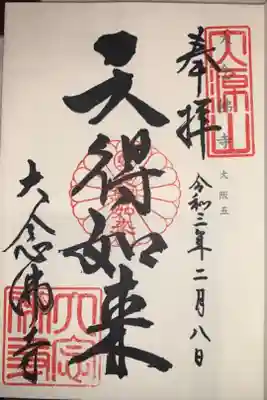 奉拝
大念佛寺
大阪五
令和三年二月八日
天得如来
大念佛寺
大源山